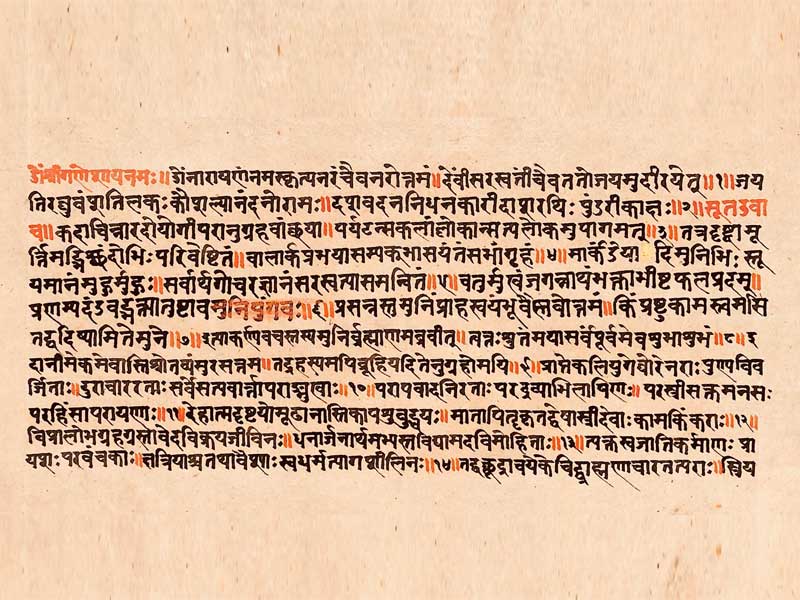 ॐश्रीगणेशायनमः॥ ॐनारायणंनमस्कृत्यनरंचैवनरोत्तमं॥देवींसरस्वतींचैवततोजयमुदीरयेत्॥१॥जय
तिरघुवंशतिलकःकौशल्यानंदनोरामः॥दशवदननिधनकारीदाशरथिःपुंडरीकाक्षः॥२॥सूतउवा
च॥कदाचिन्नारदोयोगीपरानुग्रहवांछया॥पर्यटन्सकलांल्लोकान्सत्यलोकमुपागमत्॥३॥तत्रदृष्ट्वामू
र्त्तिमद्भिश्छंदोभिःपरिवेष्टितं॥बालार्कप्रभयासम्यक्भासयंतंसभागृहं॥४॥मार्कंडेयादिमुनिभिःस्तू
यमानंमुहुर्मुहुः॥सर्वार्थगोचरज्ञानंसरस्वत्यासमन्वितं॥५॥चतुर्मुखंजगन्नाथंभक्ताभीष्टफलप्रदम्॥
प्रणम्यदंडवद्भक्त्यातुष्टावमुनिपुंगवः॥६॥प्रसन्नस्तुमुनिंप्राहस्वयंभूर्वैष्णवोत्तमं॥किंप्रष्टुकामस्त्वमसि
तद्वदिष्यामितेमुने॥७॥इत्याकर्ण्यवचस्तस्यमुनिर्ब्रह्माणमब्रवीत्॥त्वत्तःश्रुतंमयासर्वंपूर्वमेवशुभाशुभं॥८॥इ
दानीमेकमेवास्तिश्रोतव्यंसुरसत्तम॥तद्रहस्यमपिब्रूहियदितेनुग्रहोमयि॥९॥प्राप्तेकलियुगेघोरेनराःपुण्यविव
र्जिताः॥दुराचाररताःसर्वेसत्यवार्त्तापराङ्मुखाः॥१०॥परापवादनिरताःपरद्रव्याभिलाषिणः॥परस्त्रीसक्तमनसः
परहिंसापरायणाः॥११॥देहात्मदृष्टयोमूढानास्तिकापशुबुद्धयः॥मातापितृकृतद्वेषास्त्रीदेवाःकामकिंकराः॥१२॥
विप्रालोभग्रहग्रस्तावेदविक्रयजीविनः॥धनार्जनार्थमभ्यस्तविद्यामदविमोहिताः॥१३॥त्यक्तस्वजातिकर्माणःप्रा
यशःपरवंचकाः॥क्षत्रियाश्चतथावैश्याःस्वधर्मत्यागशीलिनः॥१४॥तद्वच्छूद्राश्चयेकेचिद्ब्राह्मणाचारतत्पराः॥स्त्रिय